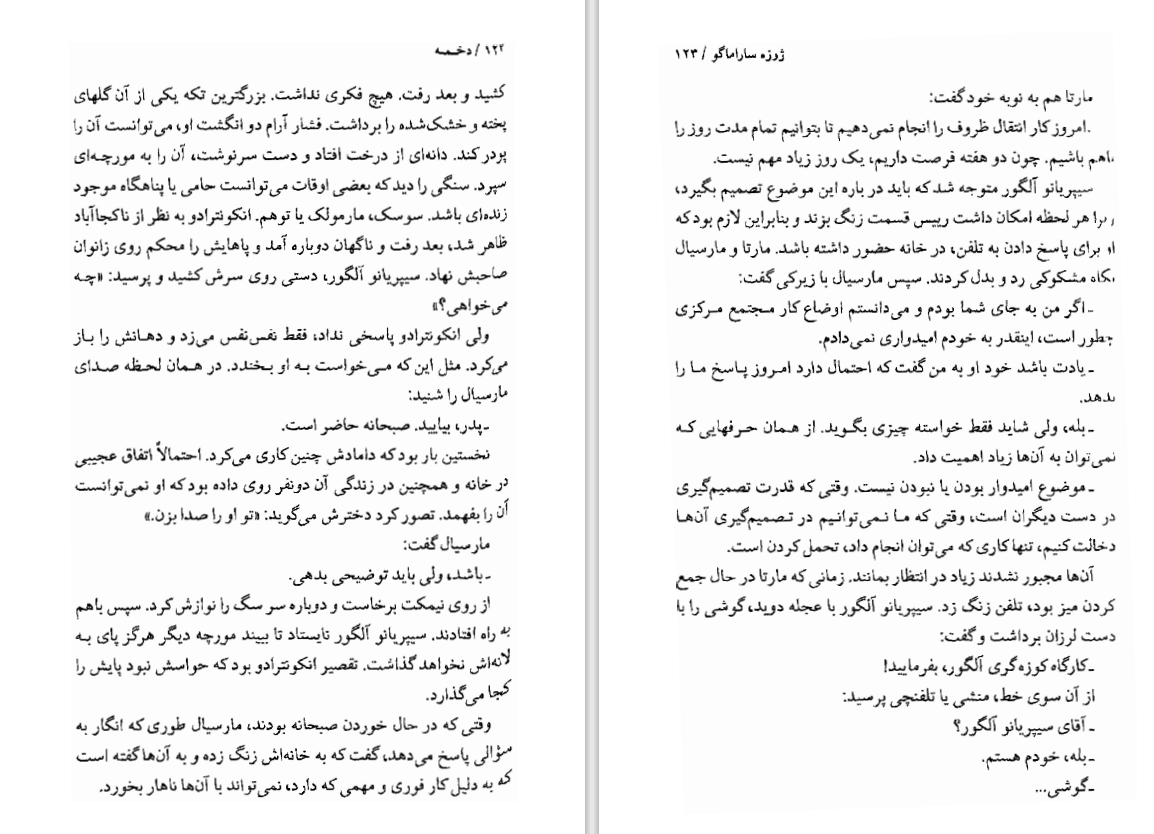 ۱۲۲ / دخمه
کشید و بعد رفت. هیچ فکری نداشت. بزرگترین تکه یکی از آن گلهای
پخته و خشک‌شده را برداشت. فشار آرام دو انگشت او، می‌توانست آن را
پودر کند. دانه‌ای از درخت افتاد و دست سرنوشت، آن را به مورچه‌ای
سپرد. سنگی را دید که بعضی اوقات می‌توانست حامی یا پناهگاه موجود
زنده‌ای باشد. سوسک، مارمولک یا توهم. انکونترادو به نظر از ناکجاآباد
ظاهر شد، بعد رفت و ناگهان دوباره آمد و پاهایش را محکم روی زانوان
صاحبش نهاد. سیپریانو آلگور، دستی روی سرش کشید و پرسید: «چه
می‌خواهی؟»
ولی انکونترادو پاسخی نداد، فقط نفس‌نفس می‌زد و دهانش را باز
می‌کرد. مثل این که می‌خواست به او بخندد. در همان لحظه صدای
مارسیال را شنید:
ـ پدر، بیایید. صبحانه حاضر است.
نخستین بار بود که دامادش چنین کاری می‌کرد. احتمالاً اتفاق عجیبی
در خانه و همچنین در زندگی آن دونفر روی داده بود که او نمی‌توانست
آن را بفهمد. تصور کرد دخترش می‌گوید: «تو او را صدا بزن.»
مارسیال گفت:
ـ باشد، ولی باید توضیحی بدهی.
از روی نیمکت برخاست و دوباره سر سگ را نوازش کرد. سپس باهم
به راه افتادند. سیپریانو آلگور نایستاد تا ببیند مورچه دیگر هرگز پای به
لانه‌اش نخواهد گذاشت. تقصیر انکونترادو بود که حواسش نبود پایش را
کجا می‌گذارد.
وقتی که در حال خوردن صبحانه بودند، مارسیال طوری که انگار به
سؤالی پاسخ می‌دهد، گفت که به خانه‌اش زنگ زده و به آن‌ها گفته است
که به دلیل کار فوری و مهمی که دارد، نمی‌تواند با آن‌ها ناهار بخورد.
ژوزه ساراماگو / ۱۲۳
مارتا هم به نوبه خود گفت:
ـ امروز کار انتقال ظروف را انجام نمی‌دهیم تا بتوانیم تمام مدت روز را
باهم باشیم. چون دو هفته فرصت داریم، یک روز زیاد مهم نیست.
سیپریانو آلگور متوجه شد که باید در باره این موضوع تصمیم بگیرد،
زیرا هر لحظه امکان داشت رییس قسمت زنگ بزند و بنابراین لازم بود که
او برای پاسخ دادن به تلفن، در خانه حضور داشته باشد. مارتا و مارسیال
نگاه مشکوکی رد و بدل کردند. سپس مارسیال با زیرکی گفت:
ـ اگر من به جای شما بودم و می‌دانستم اوضاع کار مجتمع مرکزی
چطور است، اینقدر به خودم امیدواری نمی‌دادم.
ـ یادت باشد خود او به من گفت که احتمال دارد امروز پاسخ ما را
بدهد.
ـ بله، ولی شاید فقط خواسته چیزی بگوید. از همان حرفهایی که
نمی‌توان به آن‌ها زیاد اهمیت داد.
ـ موضوع امیدوار بودن یا نبودن نیست. وقتی که قدرت تصمیم‌گیری
در دست دیگران است، وقتی که ما نمی‌توانیم در تصمیم‌گیری آن‌ها
دخالت کنیم، تنها کاری که می‌توان انجام داد، تحمل کردن است.
آن‌ها مجبور نشدند زیاد در انتظار بمانند. زمانی که مارتا در حال جمع
کردن میز بود، تلفن زنگ زد. سیپریانو آلگور با عجله دوید، گوشی را با
دست لرزان برداشت و گفت:
ـ کارگاه کوزه‌گری آلگور، بفرمایید!
از آن سوی خط، منشی یا تلفنچی پرسید:
ـ آقای سیپریانو آلگور؟
ـ بله، خودم هستم.
ـ گوشی...